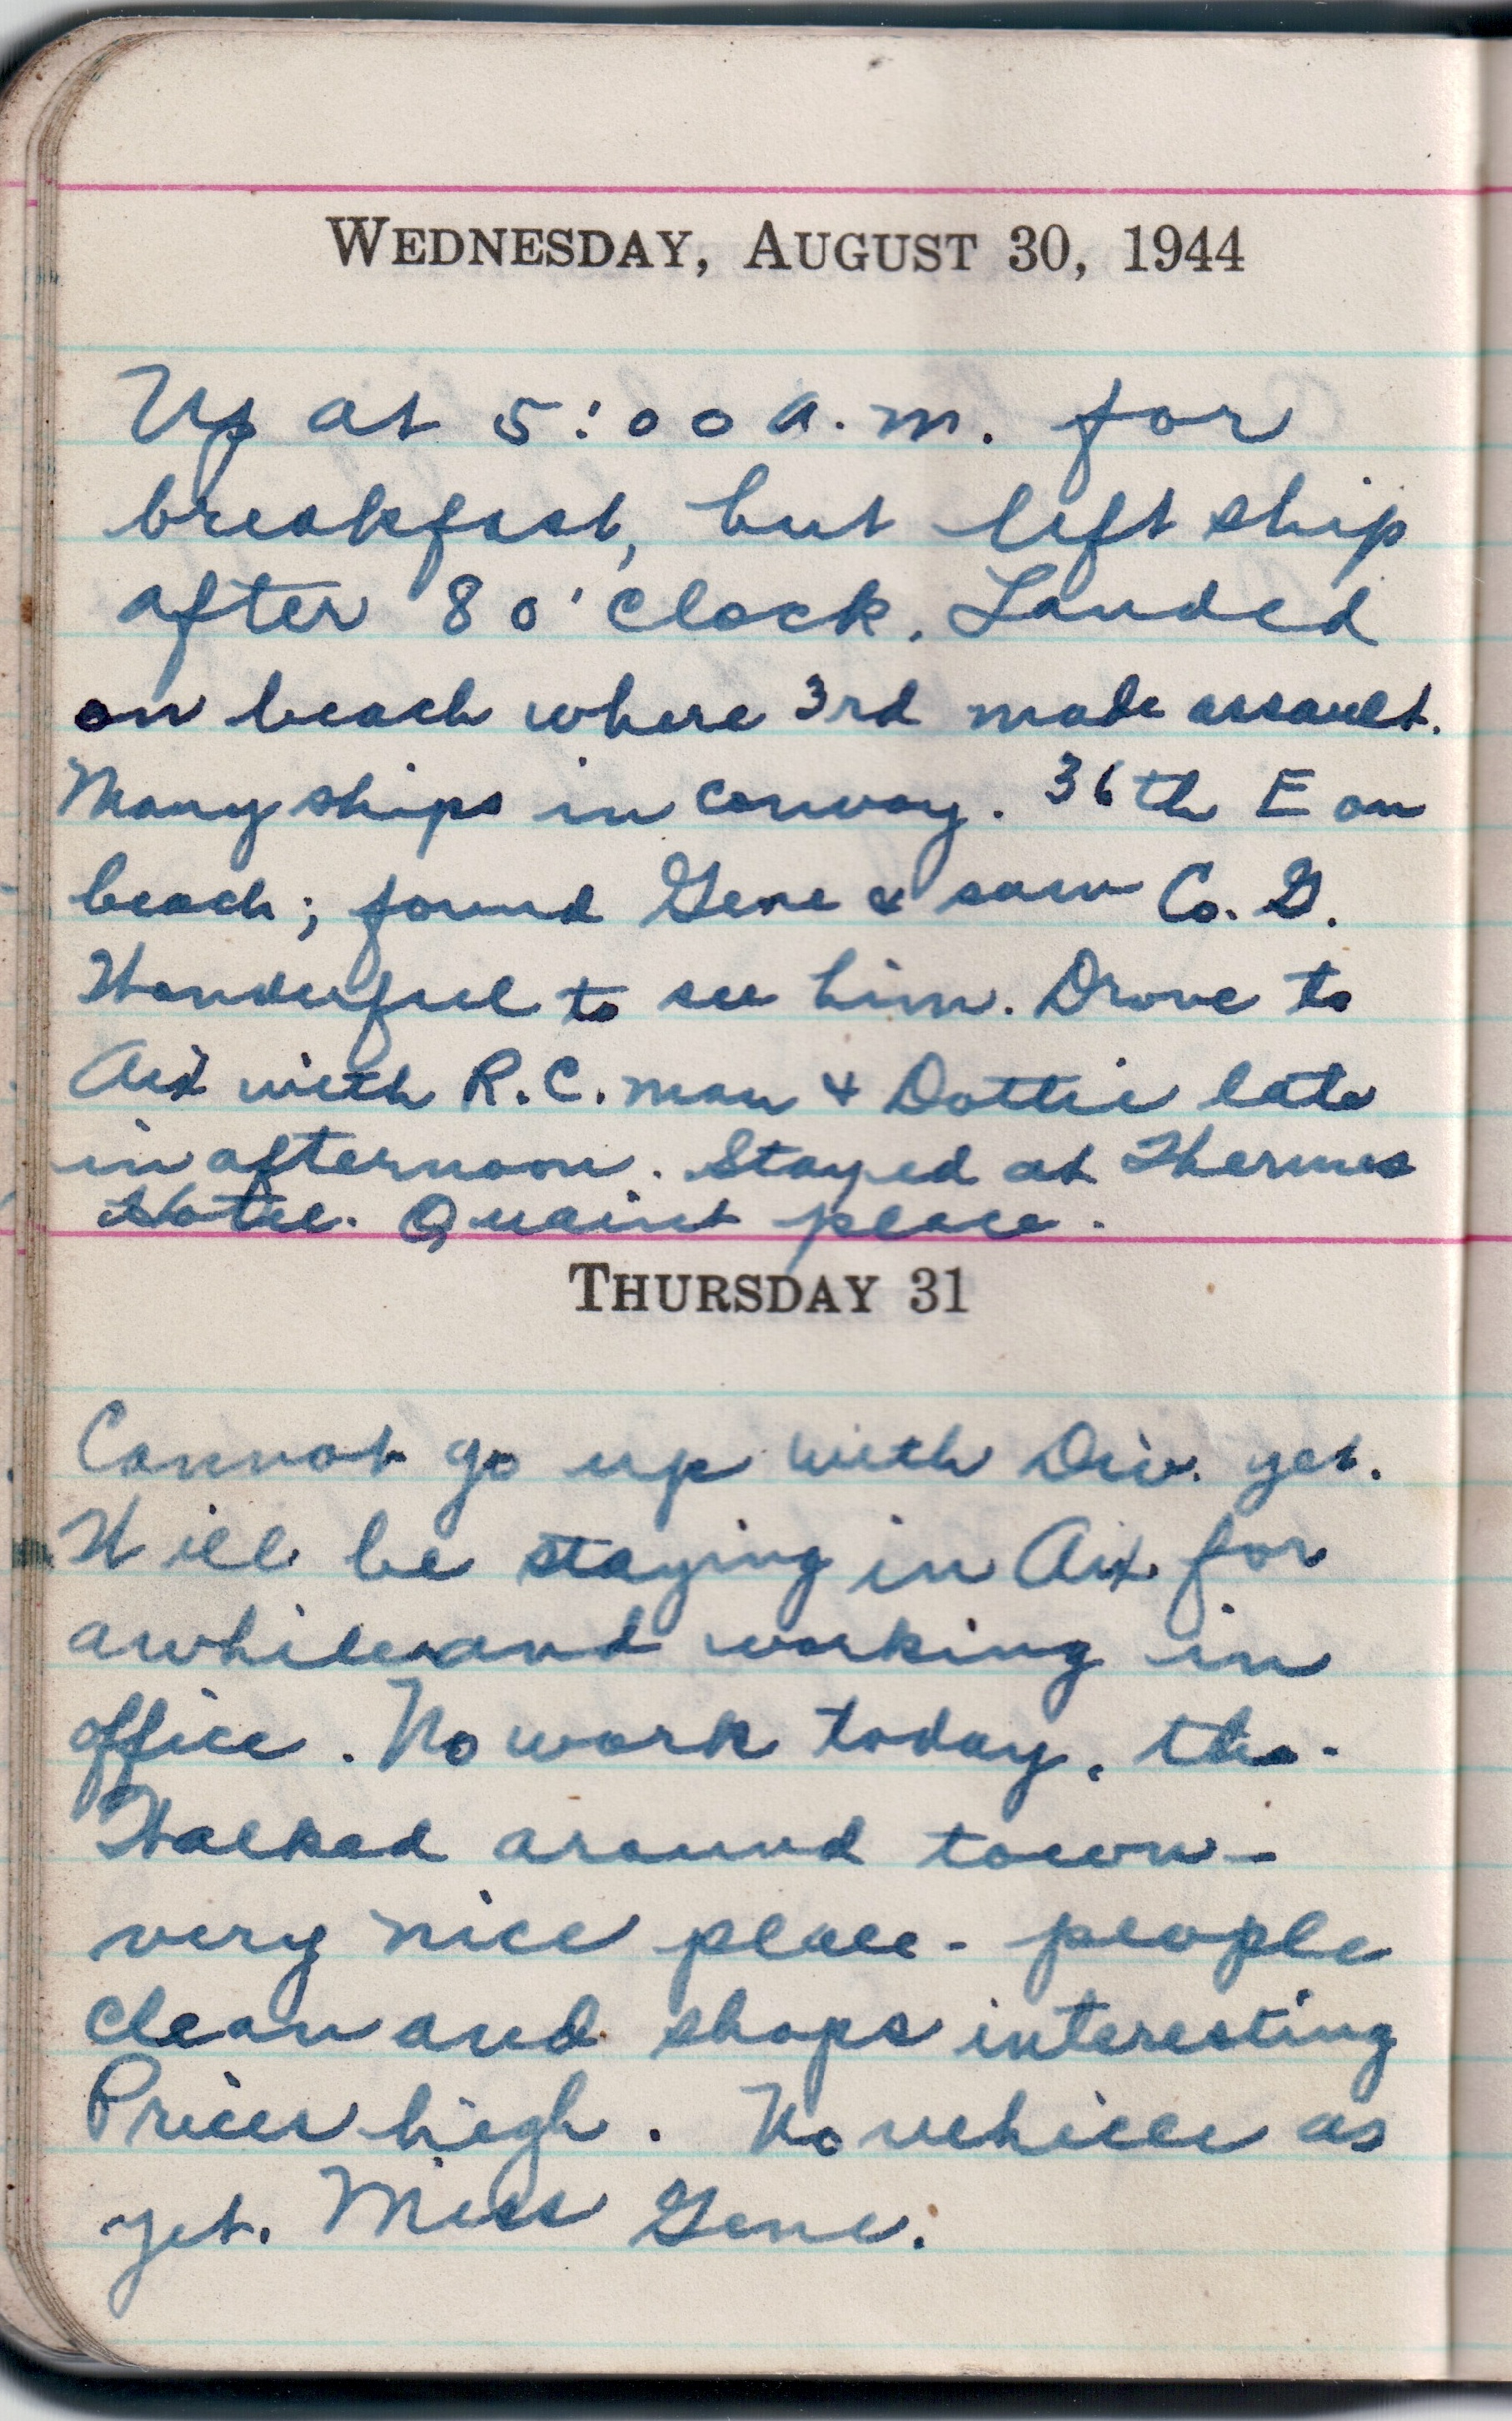 WEDNESDAY, AUGUST 30, 1944
Up at 5:00 a.m. for
breakfast, but left ship
after 8 o'clock. Landed
on beach where 3rd made assault.
Many ships in convoy. 36th E on
beach; found Gene & saw Co. D.
Wonderful to see him. Drove to
Aix with R.C. man & Dottie late
in afternoon. Stayed at Thermes
Hotel. Quaint place.
THURSDAY 31
Cannot go up with Div. yet.
Will be staying in Aix for
awhile and working in
office. No work today, tho.
Walked around town-
very nice place - people
clean and shops interesting
Prices high. No vehicle as
yet. Miss Gene.